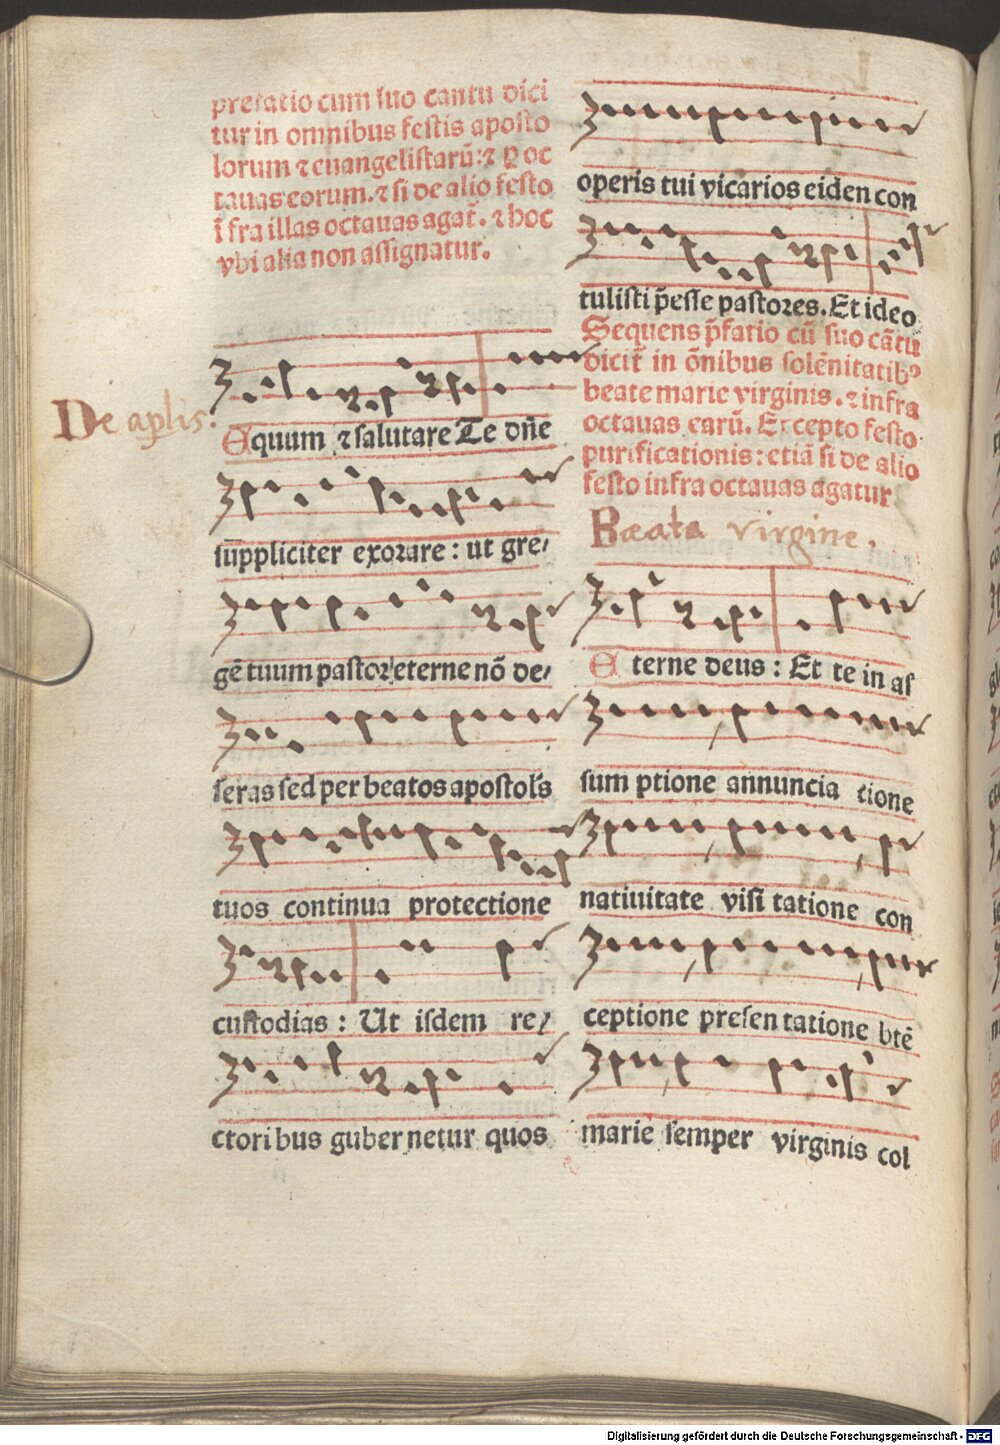 prefatio cum suo cantu dici
tur in omnibus festis aposto
lorum ⁊ euangelistarū: ⁊ ꝑ oc
tauas eorum. ⁊ si de alio festo
ī fra illas octauas agat̄. ⁊ hoc
vbi alia non assignatur.
De aplis.
Equum ⁊ salutare Te dn̄e
sūppliciter exorare : ut gre/
gē tuum pastor eterne nō de/
seras sed per beatos apostol's
tuos continua protectione
custodias : Ut isdem re/
ctoribus gubernetur quos
operis tui vicarios eiden con
tulisti p̄esse pastores. Et ideo
Sequens p̄fatio cū suo cātu
dicit̄ in ōnibus solēnitatibꝰ
beate marie virginis. ⁊ infra
octauas earū. Excepto festo
purificationis : etiā si de alio
festo infra octauas agatur
Beata virgine.
E terne deus : Et te in as
sum ptione annuncia tione
natiuitate visi tatione con
ceptione presen tatione btē
marie semper virginis col
Digitalisierung gefördert durch die Deutsche Forschungsgemeinschaft - DFG